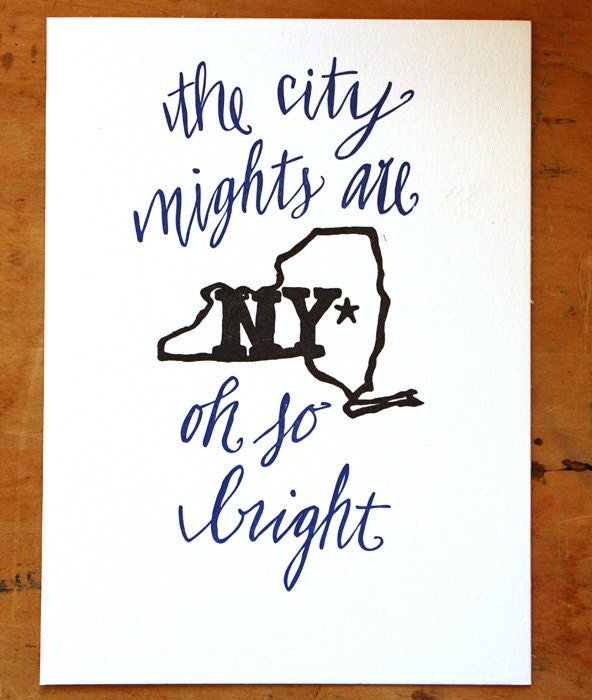 the city
nights are
NY*
oh so
bright